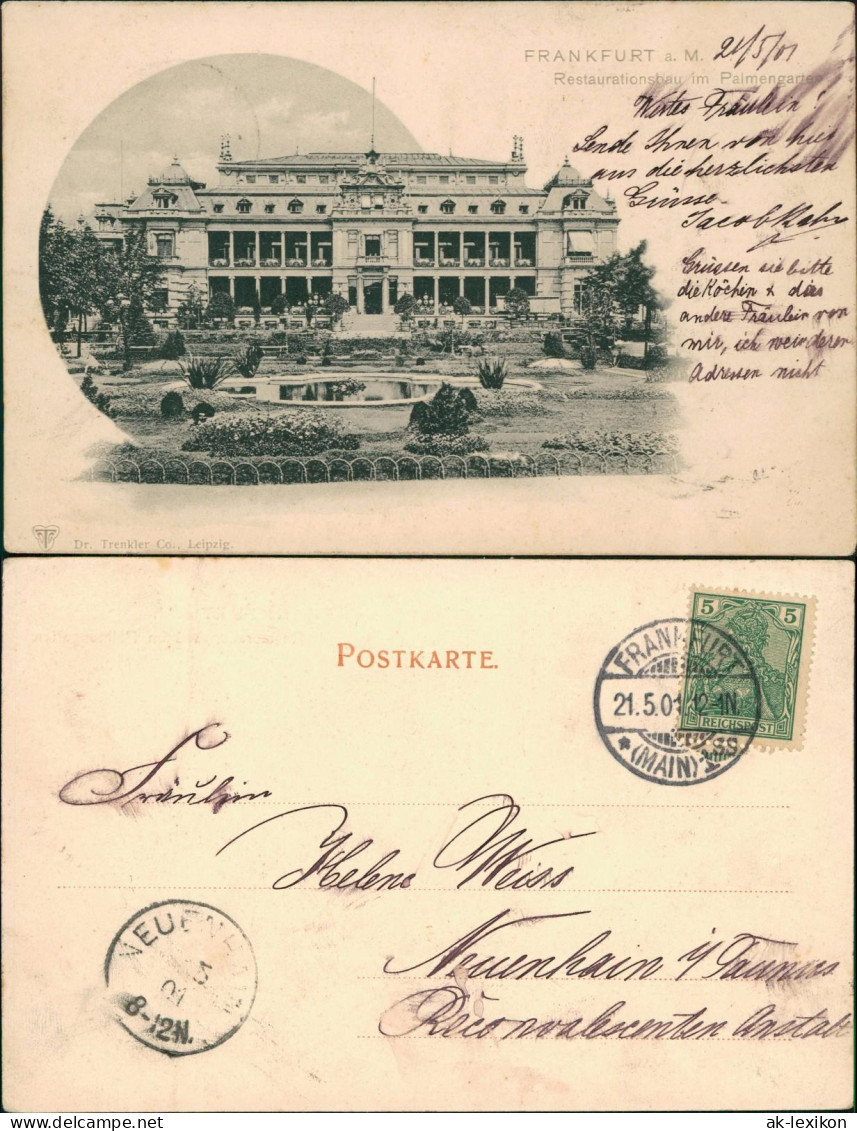 FRANKFURT a. M. 21/5/01
Restaurationsbau im Palmengarten
Wertes Fräulein!
Sende Ihnen von hier
aus die herzlichsten
Grüsse
Jacob Kahn
Grüssen sie bitte
die Köchin & das
andere Fräulein von
mir, ich weis deren
Adressen nicht
Dr. Trenkler Co., Leipzig.
POSTKARTE.
5 5
REICHSPOST
FRANKFURT
21.5.01 12-1N.
* (MAIN) 1
Fräulein
Helene Weiss
Neuenhain i/ Taunus
Reconvalescenten Anstalt
NEUENHAIN
5
01
8-12N.
© ak-lexikon ak-lexikon.com